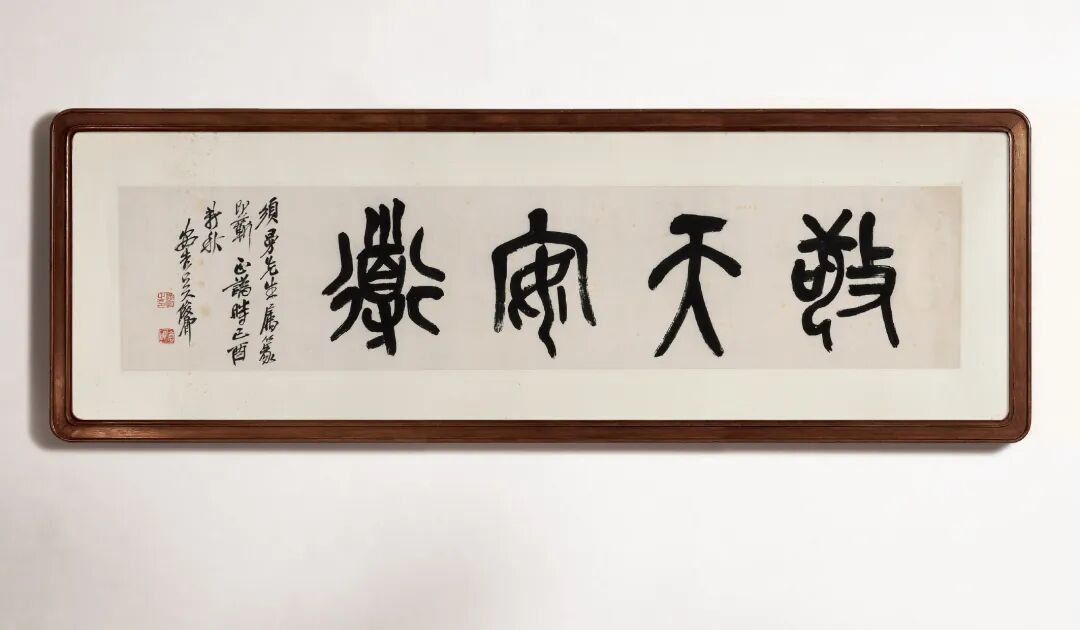 敬天安樂
須曼先生屬篆
即蘄正譌時己酉
新秋
安吉吳俊卿